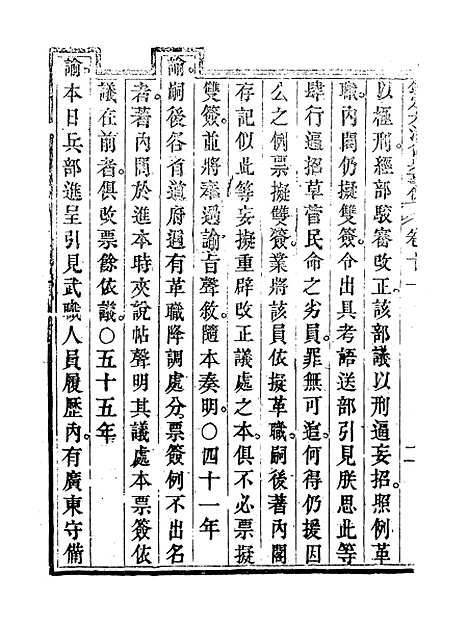 以極刑經部駮審改正該部議以刑逼妄招照例革
職內閣仍擬雙簽令出具考語送部引見朕思此等
肆行逼招草菅民命之劣員罪無可逭何得仍援因
公之例票擬雙簽業將該員依擬革職嗣後著內閣
存記似此等妄擬重辟改正議處之本俱不必票擬
雙簽並將奉過諭旨聲敘隨本奏明〇四十一年
諭嗣後各首道府遇有革職降調處分票簽例不出名
者著內閣於進本時夾說帖聲明其議處本票簽依
議在前者俱改票餘依議〇五十五年
諭本日兵部進呈引見武職人員履歷內有廣東守備